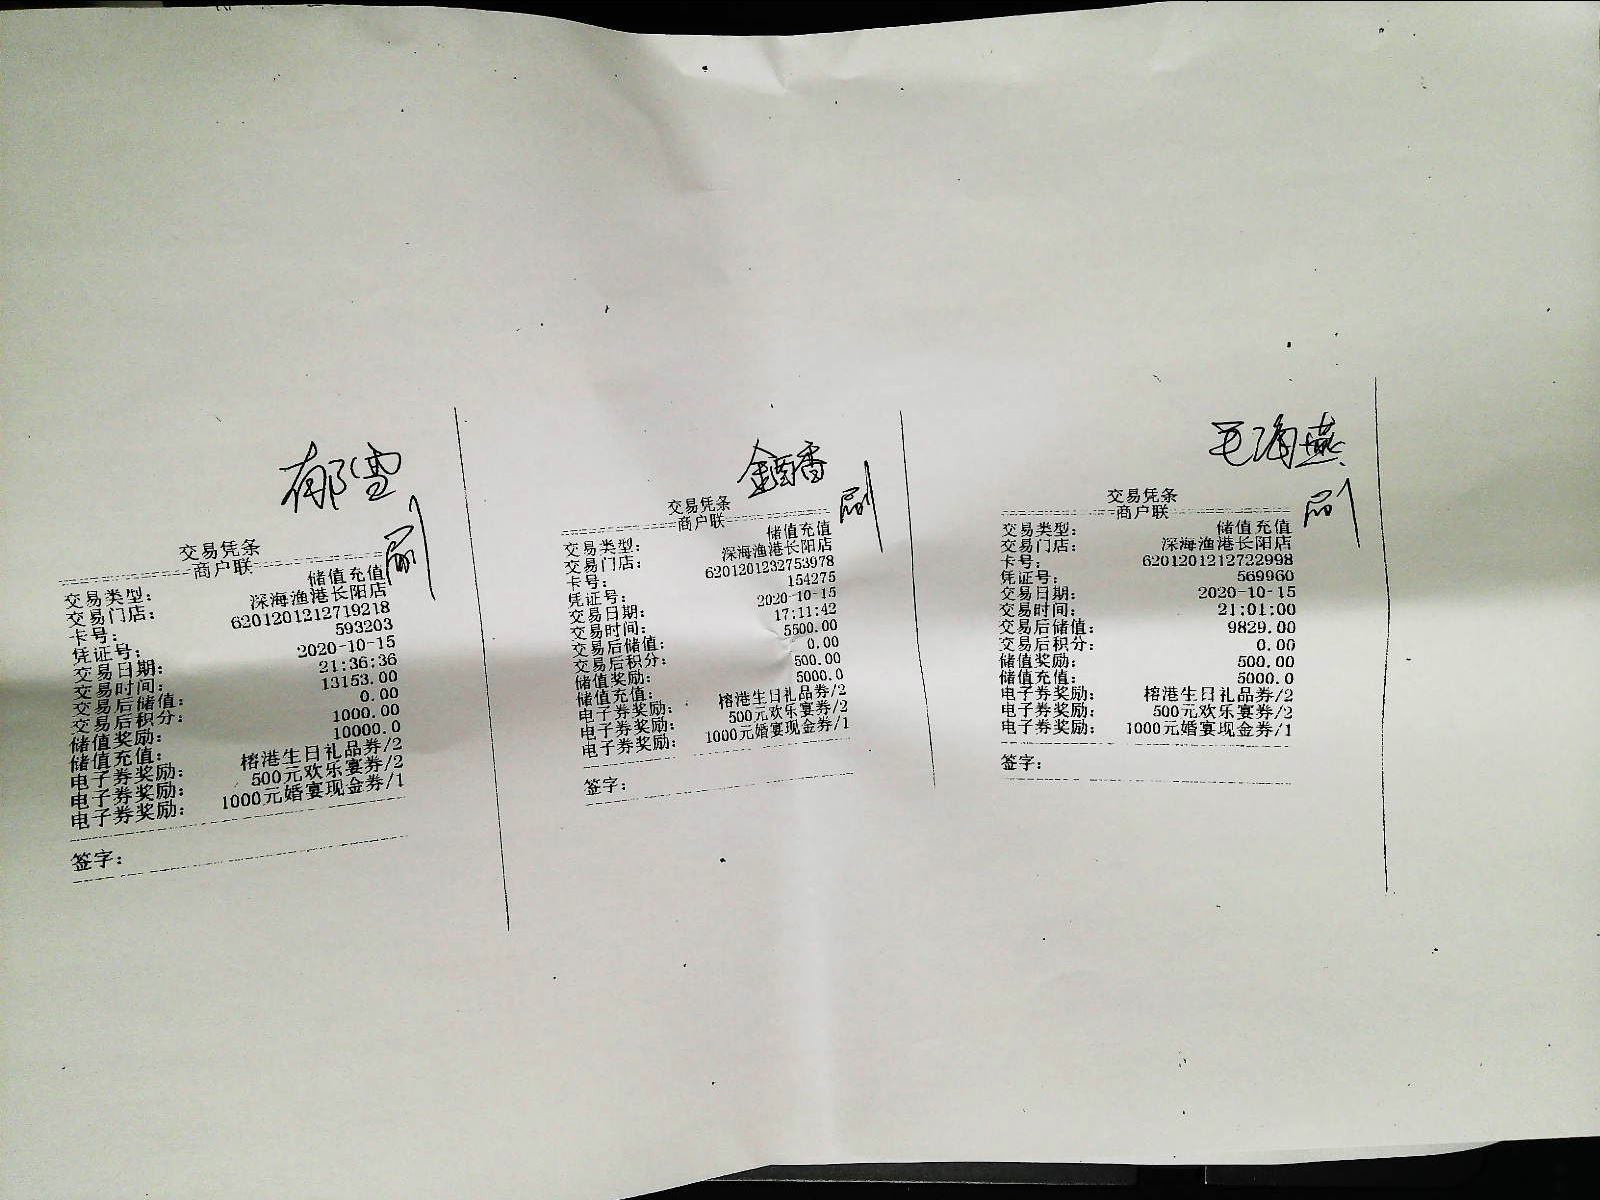 郁雪
刷
交易凭条
商户联
交易类型: 储值充值
交易门店: 深海渔港长阳店
卡号: 6201201212719218
凭证号: 593203
交易日期: 2020-10-15
交易时间: 21:36:36
交易后储值: 13153.00
交易后积分: 0.00
储值奖励: 1000.00
储值充值: 10000.0
电子券奖励: 榕港生日礼品券/2
电子券奖励: 500元欢乐宴券/2
电子券奖励: 1000元婚宴现金券/1
签字:
香
刷
交易凭条
商户联
交易类型: 储值充值
交易门店: 深海渔港长阳店
卡号: 6201201232753978
凭证号: 154275
交易日期: 2020-10-15
交易时间: 17:11:42
交易后储值: 5500.00
交易后积分: 0.00
储值奖励: 500.00
储值充值: 5000.0
电子券奖励: 榕港生日礼品券/2
电子券奖励: 500元欢乐宴券/2
电子券奖励: 1000元婚宴现金券/1
签字:
毛海燕
刷
交易凭条
商户联
交易类型: 储值充值
交易门店: 深海渔港长阳店
卡号: 6201201212722998
凭证号: 569960
交易日期: 2020-10-15
交易时间: 21:01:00
交易后储值: 9829.00
交易后积分: 0.00
储值奖励: 500.00
储值充值: 5000.0
电子券奖励: 榕港生日礼品券/2
电子券奖励: 500元欢乐宴券/2
电子券奖励: 1000元婚宴现金券/1
签字: